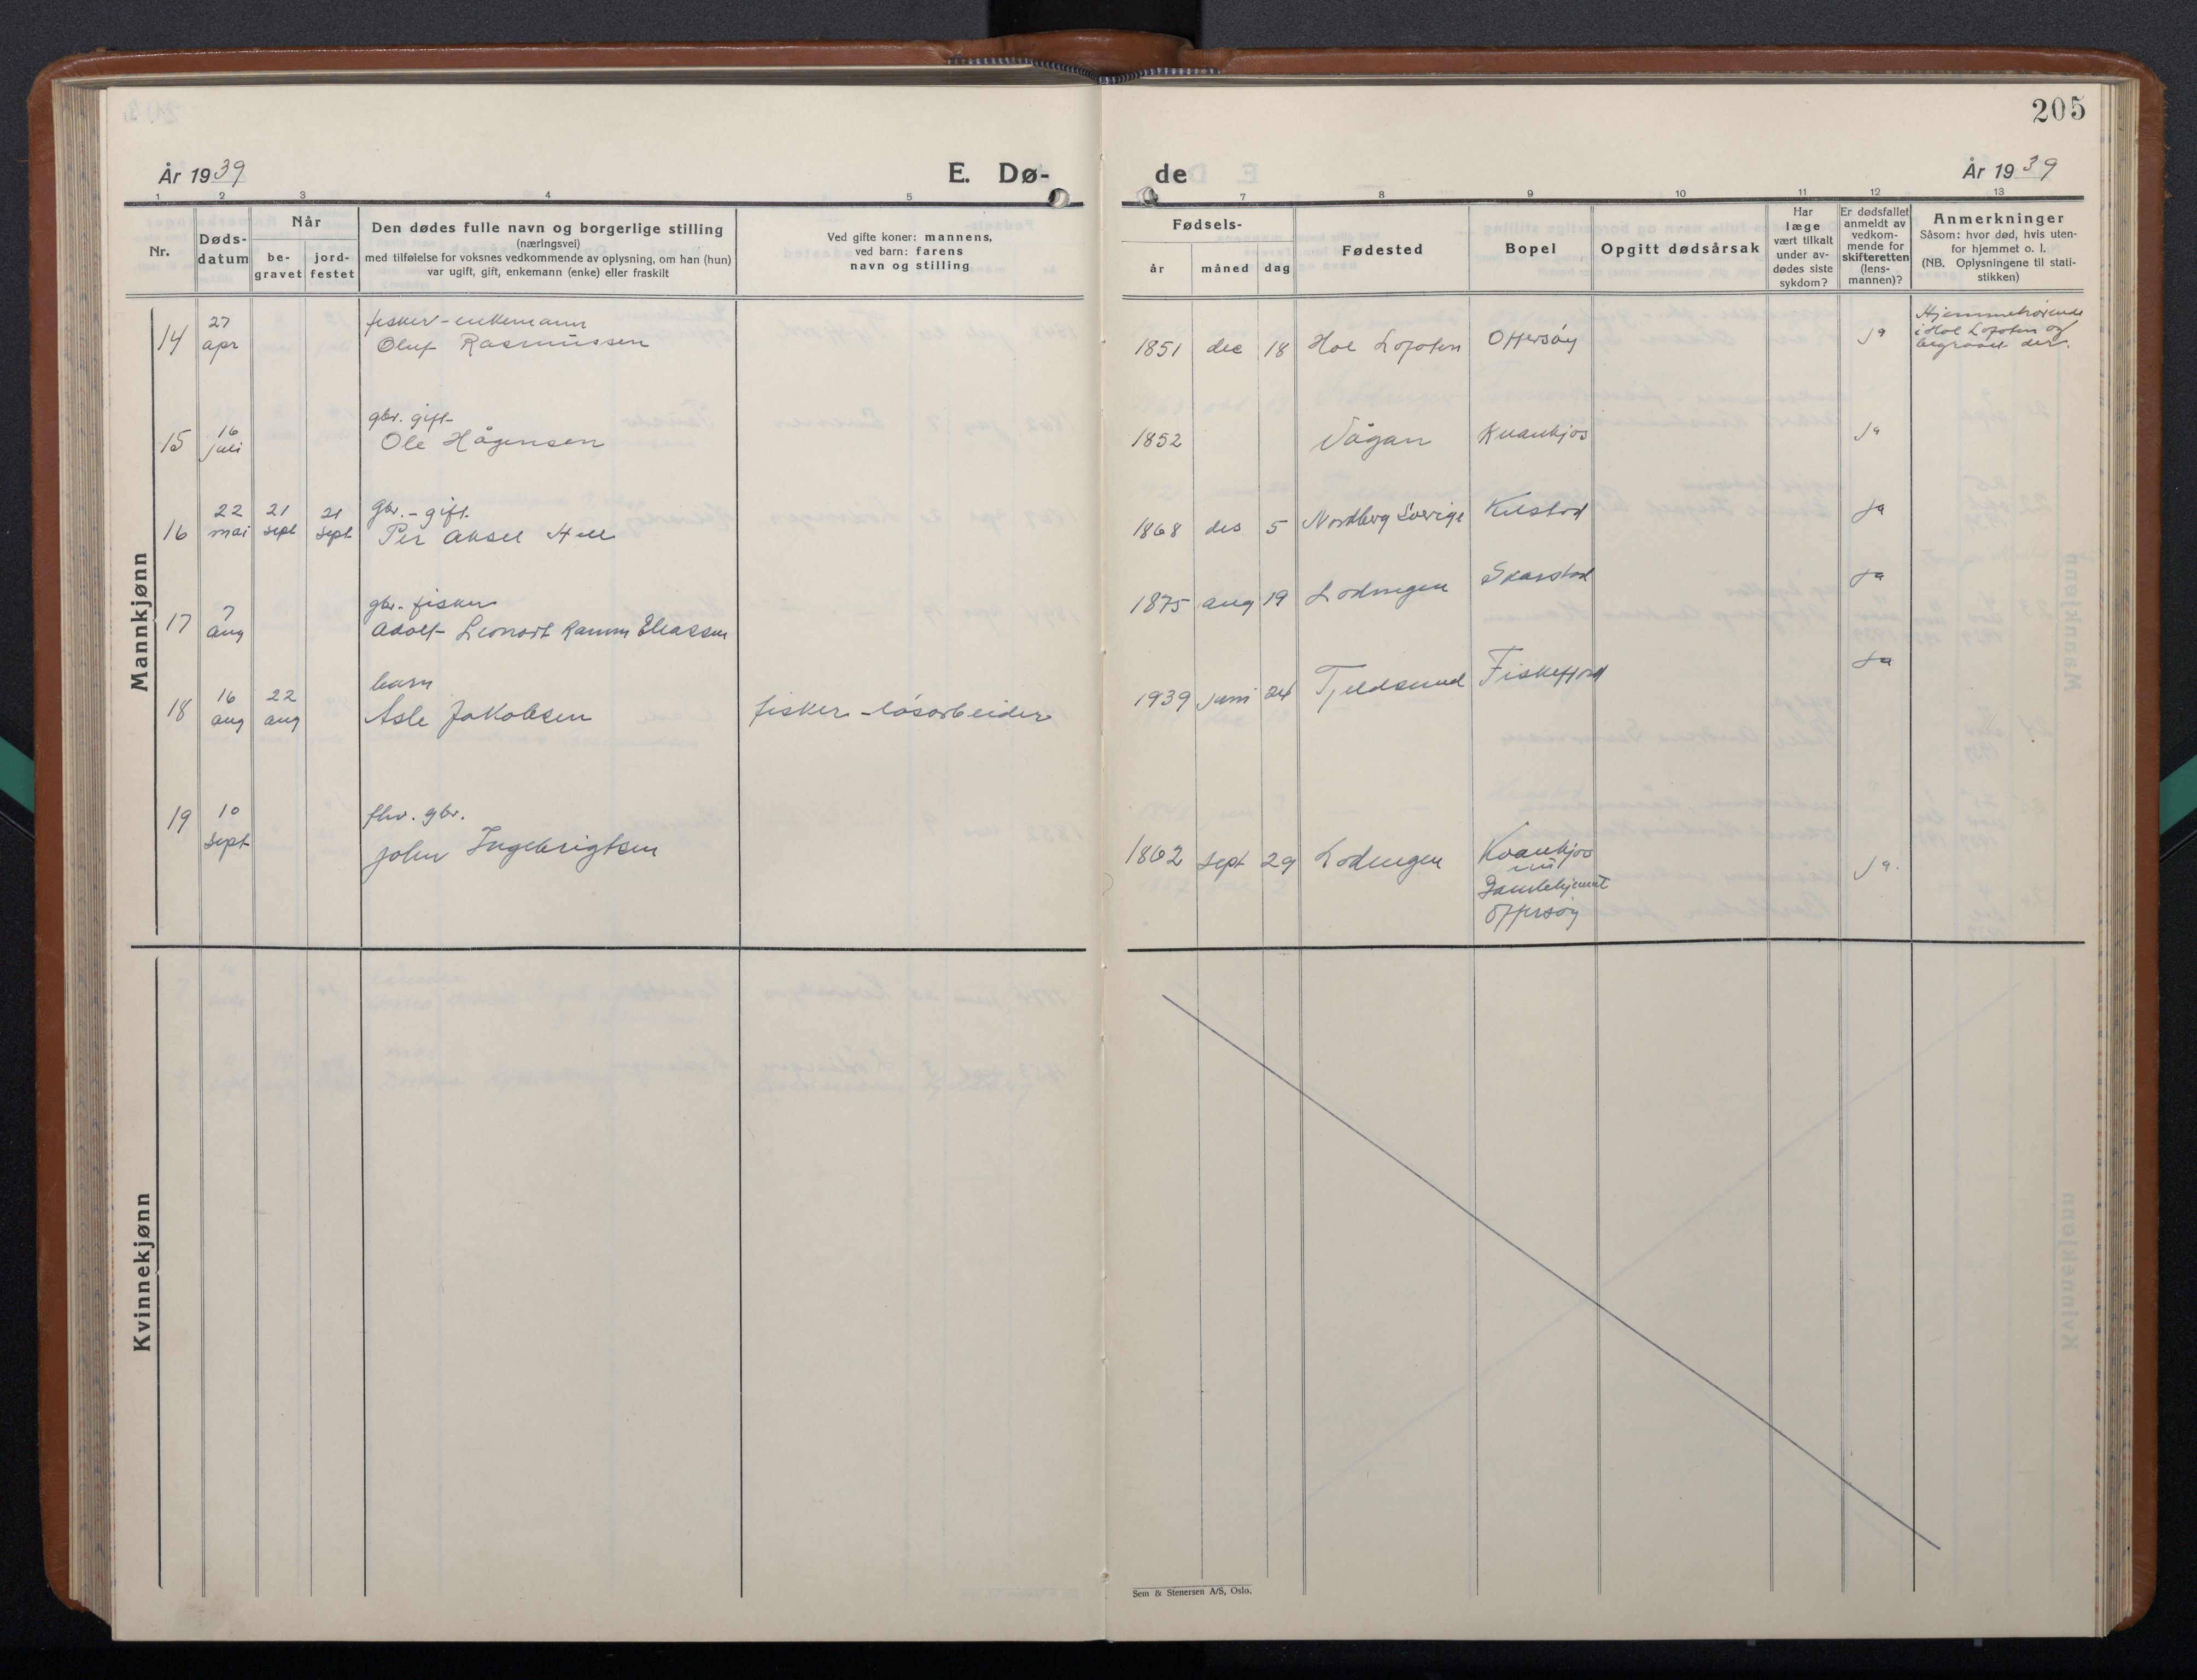 205
År 1939
E. Dø-
de
År 1939
1 2 3 4 5
7 8 9 10 11 12 13
Nr.
Døds-
datum
Når
be-
gravet
jord-
festet
Den dødes fulle navn og borgerlige stilling
(næringsvei)
med tilføielse for voksnes vedkommende av oplysning, om han (hun)
var ugift, gift, enkemann (enke) eller fraskilt
Ved gifte koner: mannens,
ved barn: farens
navn og stilling
Fødsels-
år måned dag
Fødested
Bopel
Opgitt dødsårsak
Har
læge
vært tilkalt
under av-
dødes siste
sykdom?
Er dødsfallet
anmeldt av
vedkom-
mende for
skifteretten
(lens-
mannen)?
Anmerkninger
Såsom: hvor død, hvis uten-
for hjemmet o. l.
(NB. Oplysningene til stati-
stikken)
Mannkjønn
14
27
apr
fisker - enkemann
Oluf Rasmussen
1851 dec 18 Hol Lofoten Offersøy ja
Hjemmehørende
i Hol Lofoten og
begravet der.
15
16
juli
gbr. gift
Ole Hågensen
1852 Vågan Kvankjos Ja
16
22
mai
21
sept
21
sept
gbr. - gift
Per Aksel
1868 des 5 Nordberg Sverige Kilstad Ja
17
7
aug
gbr. fisker
Adolf Leonart Ramm Eliassen
1875 aug 19 Lødingen Skarstad Ja
18
16
aug
22
aug
barn
Asle Jakobsen
fisker - løsarbeider
1939 juni 24 Tjeldsund Fiskefjord Ja
19
10
sept
fhv. gbr.
John Ingebrigtsen
1862 sept 29 Lødingen Kvankjos
nu
Gamlehjemmet
Offersøy
Ja.
Kvinnekjønn
Sem & Stenersen A/S, Oslo.